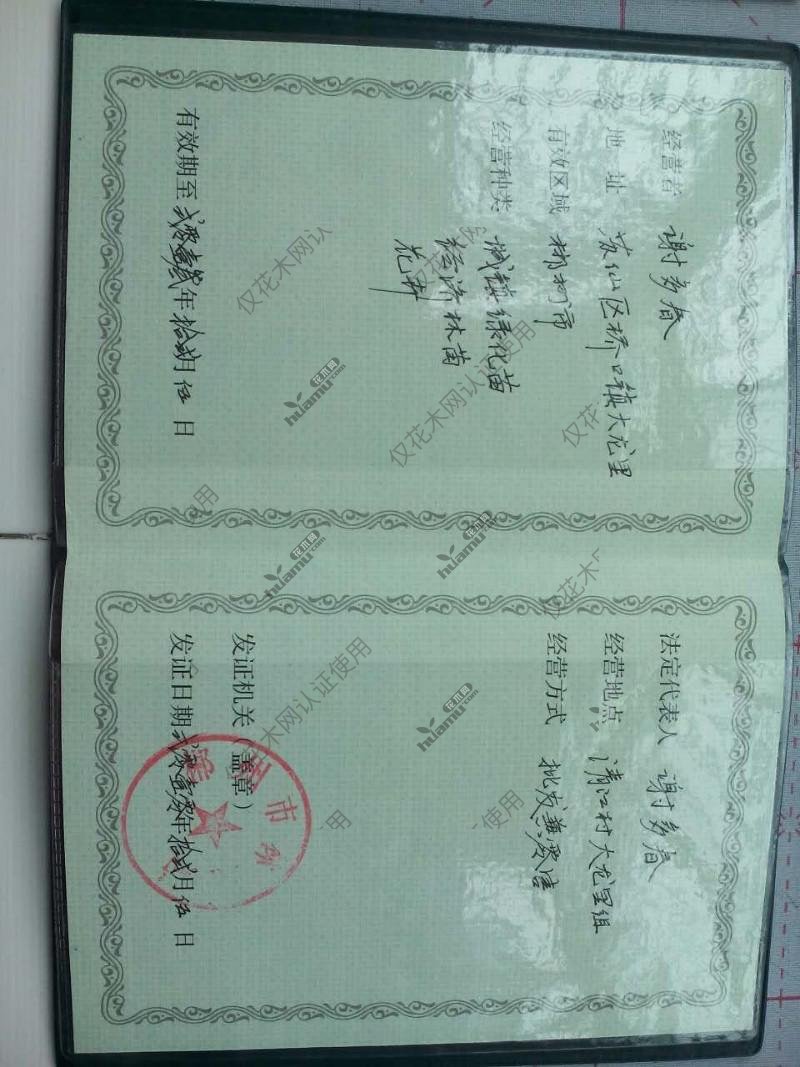 经营者 谢多春
地址 苏仙区桥口镇大龙里
有效区域 郴州市
经营种类 城镇绿化苗
经济林苗
花卉
有效期至 贰零壹贰年 拾贰月 伍 日
法定代表人 谢多春
经营地点 清江村大龙里组
经营方式 批发兼零售
发证机关（盖章）
发证日期 贰零壹零年 拾贰月 伍 日
市
仅花木网认证使用
花木网
huamu.com
仅花木网认
仅花木网认证使用
花木网
huamu.com
花木网
huamu.com
花木网认证使用
花木网
huamu.com